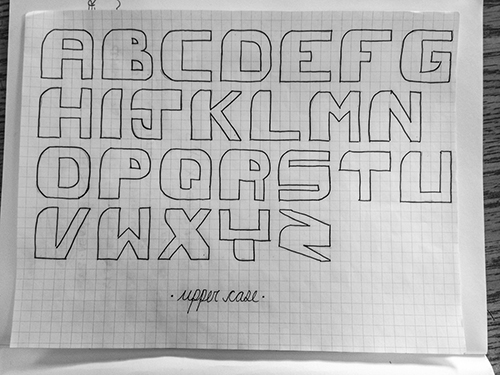 ABCDEFG
HIJKLMN
OPQRSTU
VWXYZ
· upper case ·